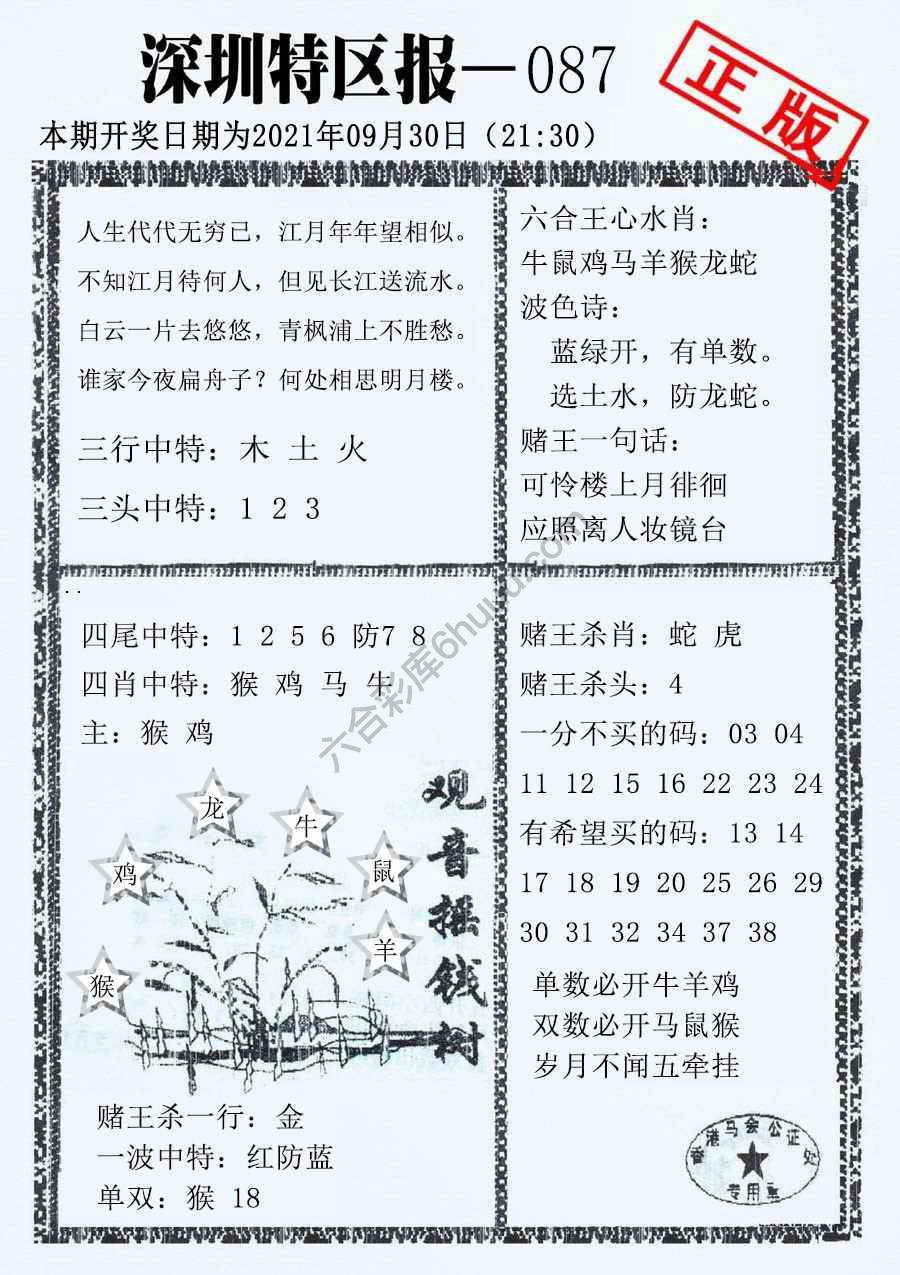 深圳特区报—087
正版
本期开奖日期为2021年09月30日（21:30）
人生代代无穷已，江月年年望相似。
不知江月待何人，但见长江送流水。
白云一片去悠悠，青枫浦上不胜愁。
谁家今夜扁舟子？何处相思明月楼。
三行中特：木 土 火
三头中特：1 2 3
六合王心水肖：
牛鼠鸡马羊猴龙蛇
波色诗：
蓝绿开，有单数。
选土水，防龙蛇。
赌王一句话：
可怜楼上月徘徊
应照离人妆镜台
四尾中特：1 2 5 6 防7 8
四肖中特：猴 鸡 马 牛
主：猴 鸡
龙
牛
鸡
鼠
羊
猴
观音摇钱树
赌王杀一行：金
一波中特：红防蓝
单双：猴 18
赌王杀肖：蛇 虎
赌王杀头：4
一分不买的码：03 04
11 12 15 16 22 23 24
有希望买的码：13 14
17 18 19 20 25 26 29
30 31 32 34 37 38
单数必开牛羊鸡
双数必开马鼠猴
岁月不闻五牵挂
香港马会公证处
专用章
六合彩库6huu.com